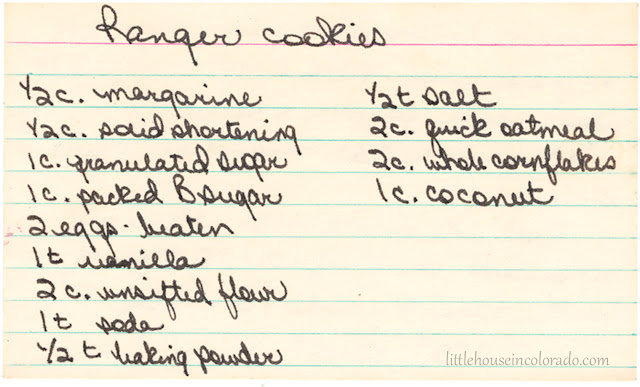 Ranger cookies
1/2 c. margarine
1/2 c. solid shortening
1 c. granulated sugar
1 c. packed B sugar
2 eggs - beaten
1 t vanilla
2 c. unsifted flour
1 t soda
1/2 t baking powder
1/2 t salt
2 c. quick oatmeal
2 c. whole cornflakes
1 c. coconut
littlehouseincolorado.com